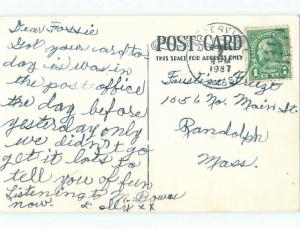 Dear Fossie
Got your card to
day as was in
the post office
the day before
yesterday only
we didn't go
get it lots to
tell you of fun
Listening to Mr. Bowes
now. Polly x x
POST CARD
THIS SPACE FOR ADDRESS ONLY
1937
MASS
1 CENT 1
Faustine
1056 No. Main St.
Randolph
Mass.